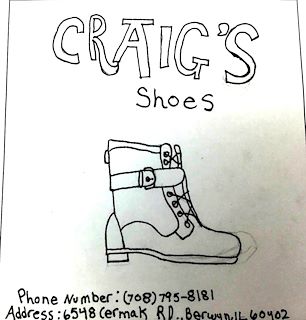 CRAIG'S
Shoes
Phone Number: (708) 795-8181
Address: 6548 Cermak RD., Berwyn, IL 60402